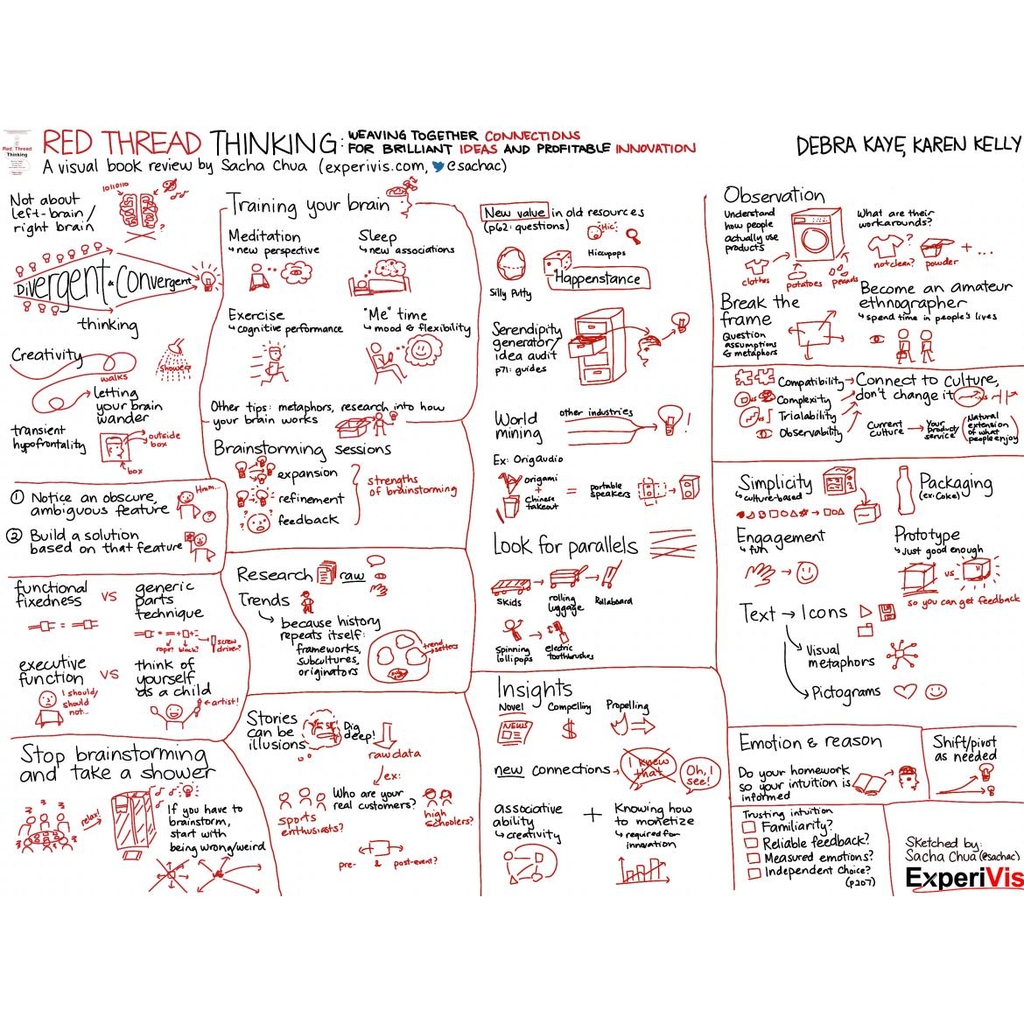 Red Thread
Thinking
RED THREAD THINKING: WEAVING TOGETHER CONNECTIONS
FOR BRILLIANT IDEAS AND PROFITABLE INNOVATION
DEBRA KAYE, KAREN KELLY
A visual book review by Sacha Chua (experivis.com, @sachac)
Not about
left-brain/
right brain
1011010
?
Divergent & Convergent
thinking
Creativity
walks
shower
letting
your brain
wander
transient
hypofrontality
outside
box
box
① Notice an obscure,
ambiguous feature
Hmm...
② Build a solution
based on that feature
functional
fixedness
vs
generic
parts
technique
rope?
block?
screw
driver?
executive
function
vs
think of
yourself
as a child
I should/
should
not...
artist!
Stop brainstorming
and take a shower
relax!
If you have to
brainstorm,
start with
being wrong/weird
Training your brain
Meditation
new perspective
Sleep
new associations
Exercise
cognitive performance
"Me" time
mood & flexibility
Other tips: metaphors, research into how
your brain works
Brainstorming sessions
expansion
refinement
feedback
strengths
of brainstorming
Research
raw
Trends
because history
repeats itself:
frameworks,
subcultures,
originators
trend
setters
Stories
can be
illusions
Dig
deep!
raw data
ex:
Who are your
real customers?
sports
enthusiasts?
high
schoolers?
pre- & post-event?
New value in old resources
(p62: questions)
Hic!
Hiccupops
Silly Putty
Happenstance
Serendipity
generator/
idea audit
p71: guides
World
mining
other industries
!
Ex: OrigAudio
origami
+
Chinese
takeout
=
portable
speakers
Look for parallels
skids
rolling
luggage
Rollaboard
Spinning
lollipops
electric
toothbrushes
Insights
Novel
Compelling
Propelling
NEWS
$
new connections
I knew
that
Oh, I
see!
associative
ability
creativity
+
Knowing how
to monetize
required for
innovation
Observation
Understand
how people
actually use
products
clothes
potatoes
peanuts
What are their
workarounds?
not clean?
powder
+ ...
Break the
frame
Question
assumptions
& metaphors
Become an amateur
ethnographer
spend time in people's lives
Compatibility
Complexity
Trialability
Observability
Connect to culture,
don't change it
vs
Current
culture
Your product/
service
(Natural
extension
of what
people enjoy)
Simplicity
culture-based
Packaging
(ex: Coke)
Engagement
fun
Prototype
Just good enough
vs
so you can get feedback
Text → Icons
Visual
metaphors
Pictograms
Emotion & reason
Do your homework
so your intuition is
informed
Shift/pivot
as needed
Trusting intuition
Familiarity?
Reliable feedback?
Measured emotions?
Independent choice?
(p207)
Sketched by:
Sacha Chua (@sachac)
ExperiVis